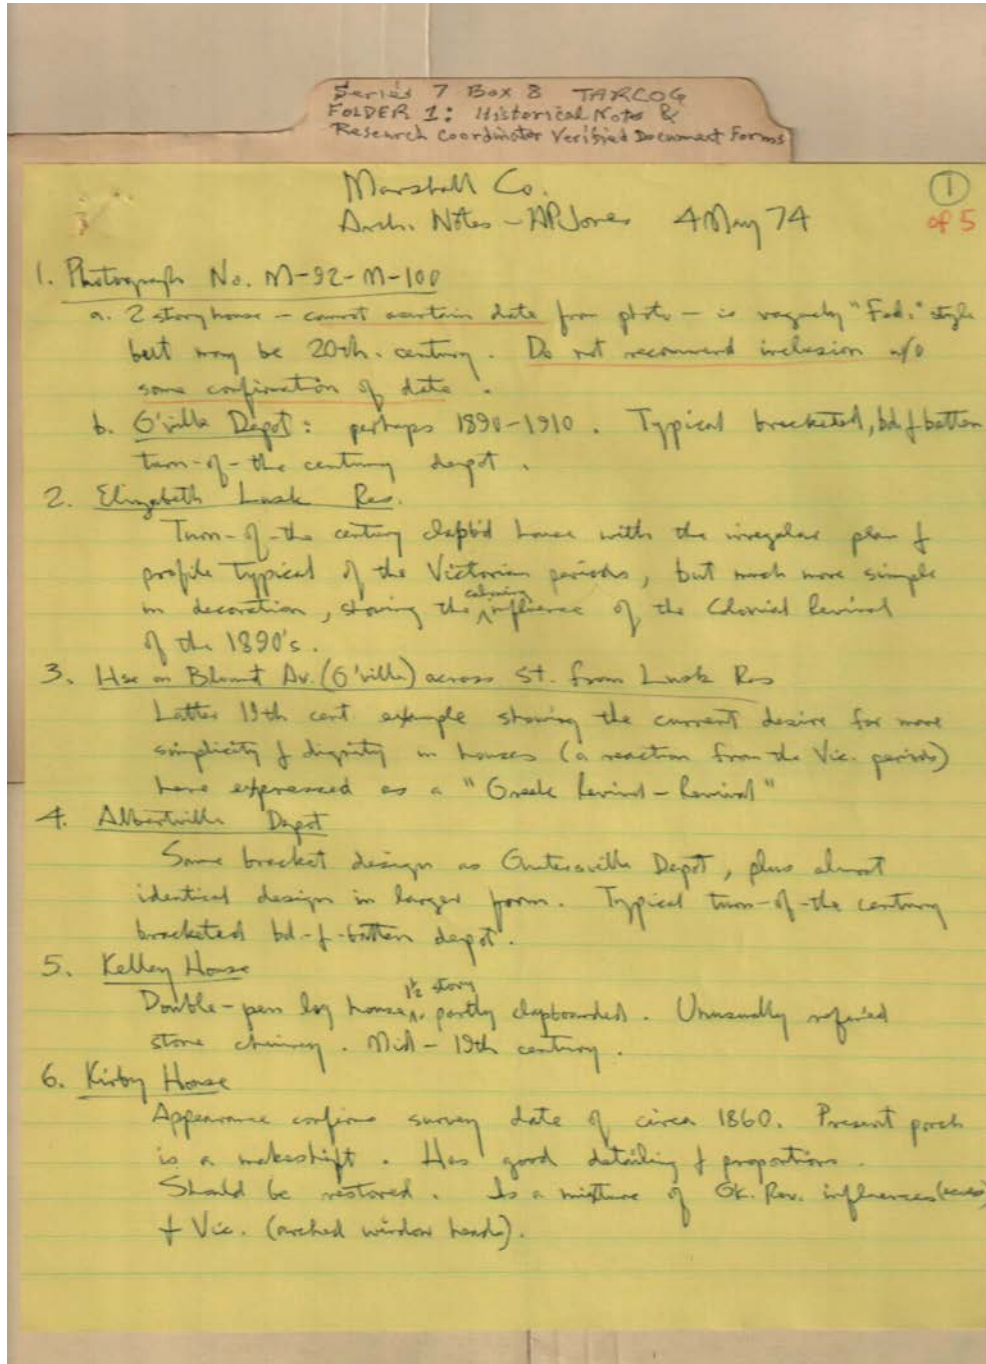 Series 7 Box 8 TARCOG
FOLDER 1: Historical Notes &
Research Coordinator Verified Document Forms
Marshall Co.
Arch. Notes - AP Jones 4 May 74
1
of 5
1. Photograph No. M-92-M-100
a. 2 story house - cannot ascertain date from photo - is vaguely "Fed." style
but may be 20th. century. Do not recommend inclusion w/o
some confirmation of date.
b. G'ville Depot: perhaps 1890-1910. Typical bracketed, bd & batten
turn-of-the century depot.
2. Elizabeth Lusk Res.
Turn-of-the century clapb'd house with the irregular plan &
profile typical of the Victorian periods, but much more simple
in decoration, showing the calming influence of the Colonial Revival
of the 1890's.
3. Hse on Blount Av. (G'ville) across St. from Lusk Res
Latter 19th cent example showing the current desire for more
simplicity & dignity in houses (a reaction from the Vic. periods)
here expressed as a "Greek Revival-Revival"
4. Albertville Depot
Same bracket design as Guntersville Depot, plus almost
identical design in larger form. Typical turn-of-the century
bracketed bd-&-batten depot.
5. Kelley House
Double-pen log house, 1½ story partly clapboarded. Unusually refined
stone chimney. Mid-19th century.
6. Kirby House
Appearance confirms survey date of circa 1860. Present porch
is a makeshift. Has good detailing & proportions.
Should be restored. Is a mixture of Gk. Rev. influences (eaves)
& Vic. (arched window heads).